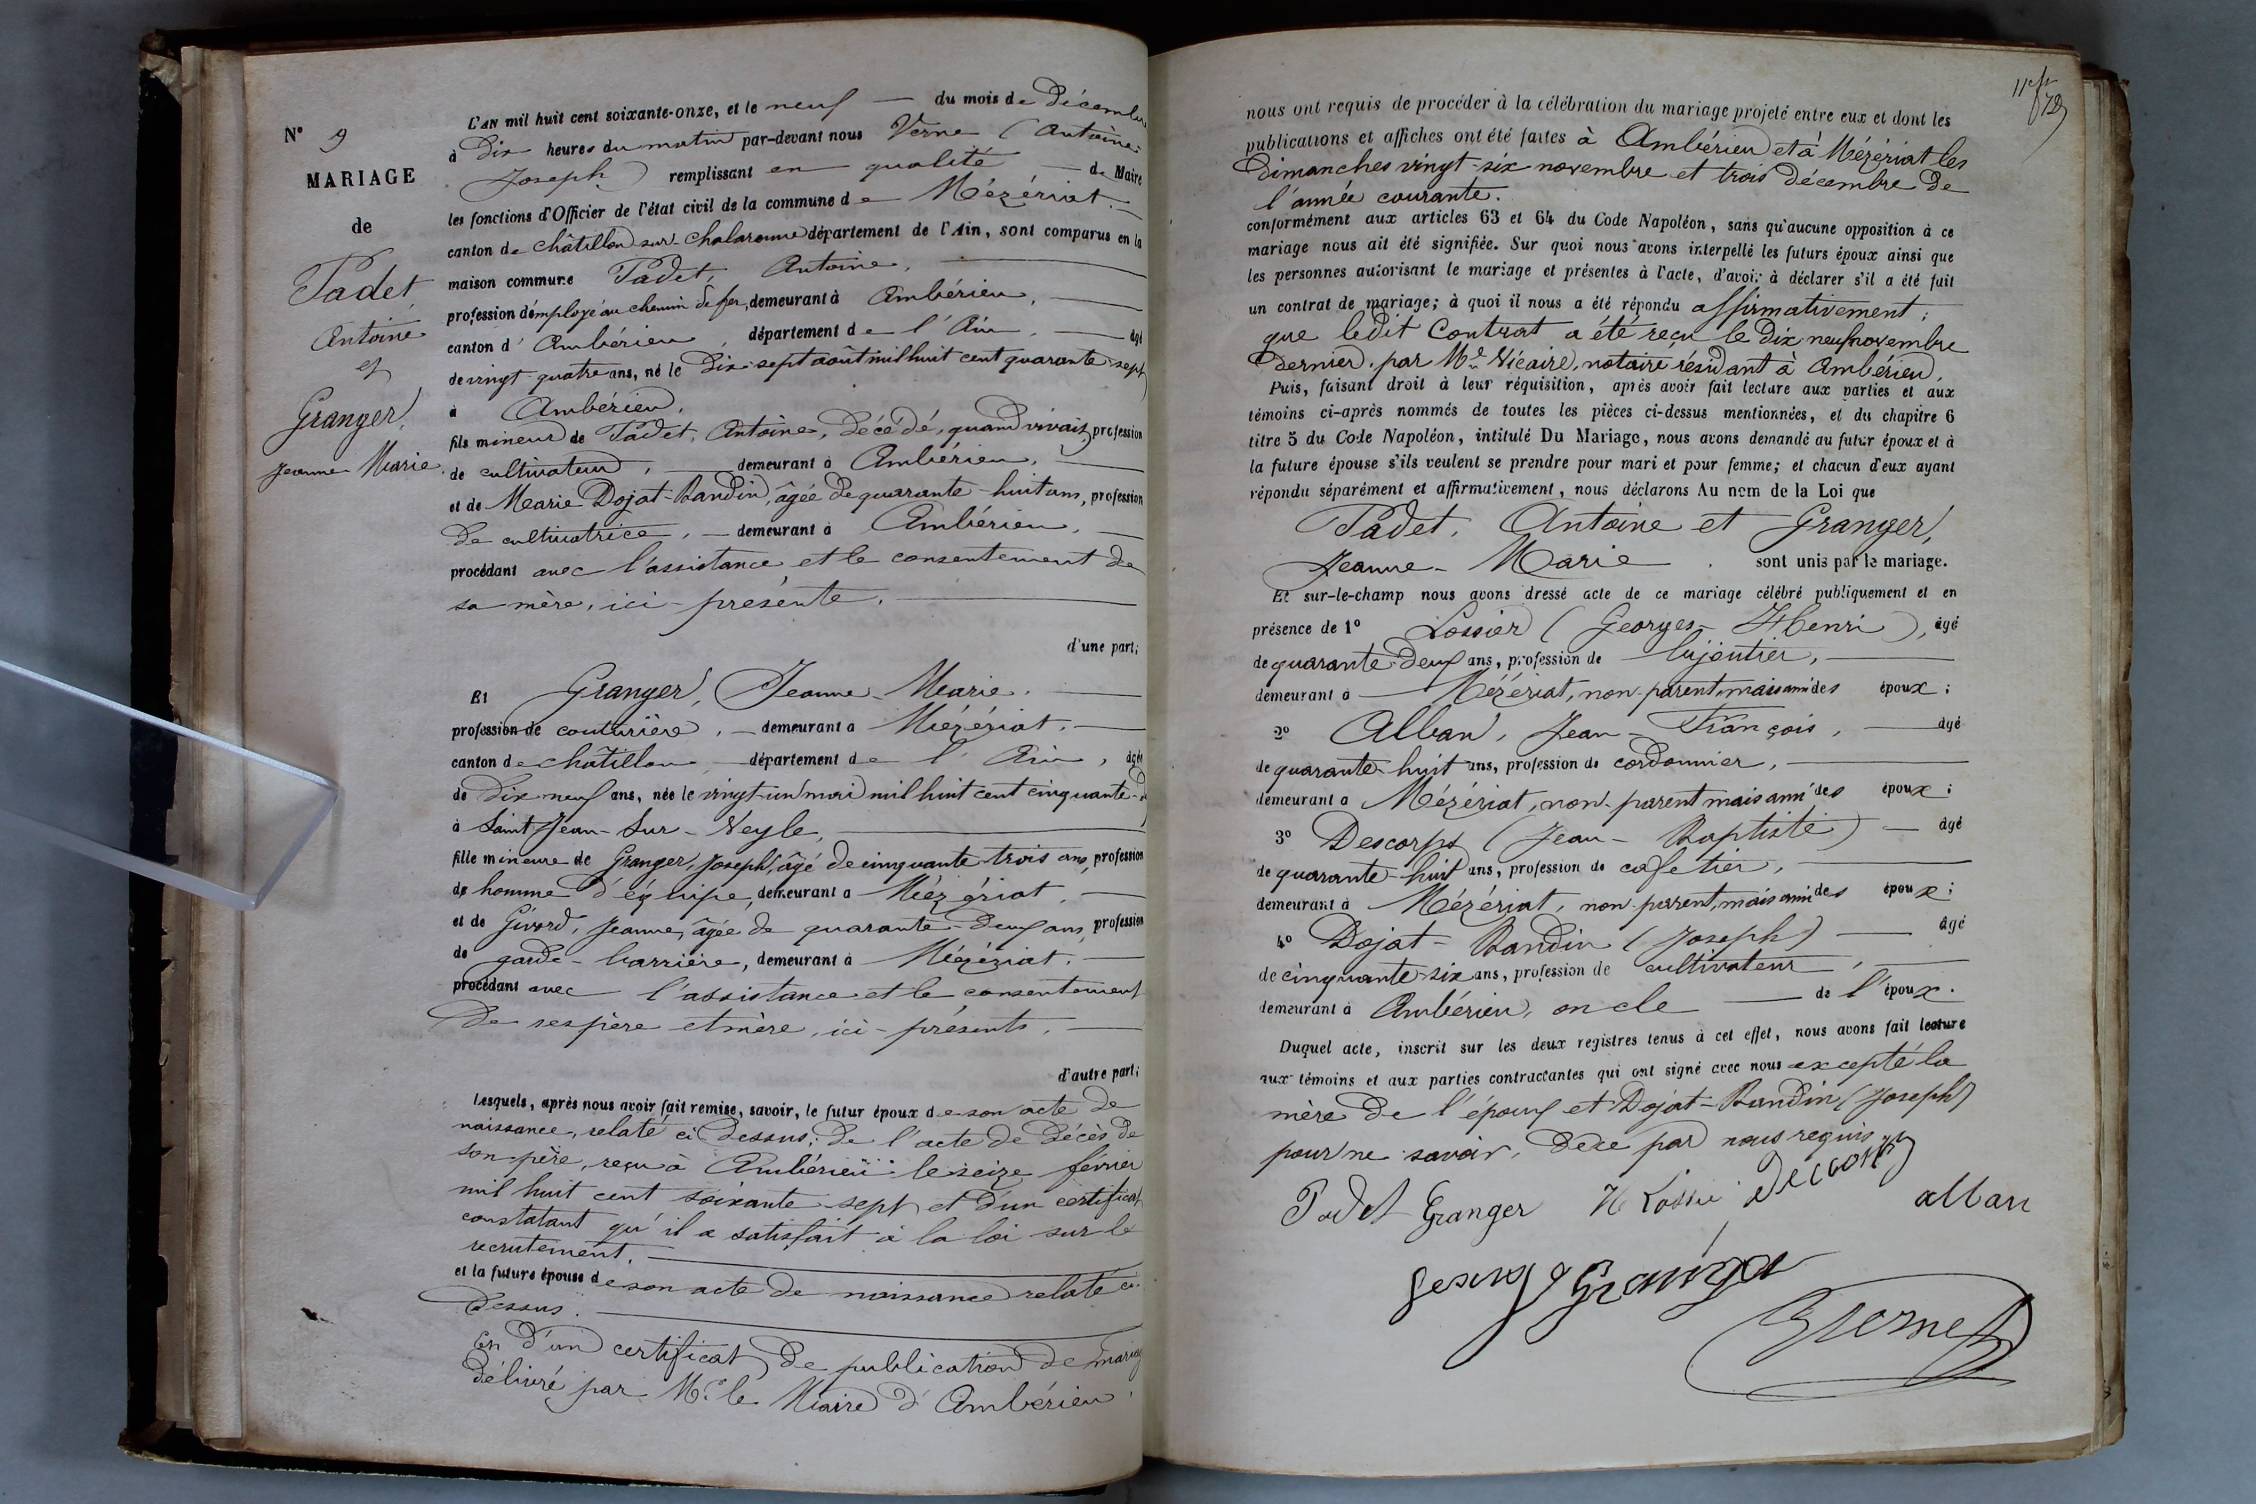 N° 9
MARIAGE
de
Padet
Antoine
et
Granger,
Jeanne Marie.
L'AN mil huit cent soixante-onze, et le neuf — du mois de Décembre
à Dix heures du matin par-devant nous Verne (Antoine-
Joseph) remplissant en qualité — de Maire
les fonctions d'Officier de l'état civil de la commune de Mézériat. —
canton de Châtillon-sur-Chalaronne département de l'Ain, sont comparus en la
maison commune Padet, Antoine, —
profession d'employé au chemin de fer, demeurant à Ambérieu, —
canton d'Ambérieu, département de l'Ain, — âgé
de vingt-quatre ans, né le Dix-sept août mil huit cent quarante-sept
à Ambérieu,
fils mineur de Padet, Antoine, Décédé, quand vivait profession
de cultivateur, — demeurant à Ambérieu, —
et de Marie Dojat-Randin, âgée de quarante-huit ans, profession
de cultivatrice, — demeurant à Ambérieu, —
procédant avec l'assistance et le consentement de
sa mère, ici-présente. —
d'une part;
Et Granger, Jeanne-Marie. —
profession de couturière, — demeurant à Mézériat. —
canton de Châtillon — département de l'Ain, âgée
de Dix-neuf ans, née le vingt-un mai mil huit cent cinquante-
à Saint-Jean-Sur-Veyle, —
fille mineure de Granger, Joseph, âgé de cinquante-trois ans, profession
de homme d'équipe, demeurant à Mézériat, —
et de Givord, Jeanne, âgée de quarante-deux ans, profession
de garde-barrière, demeurant à Mézériat. —
procédant avec l'assistance et le consentement
de ses père et mère, ici-présents. —
d'autre part;
Lesquels, après nous avoir fait remise, savoir, le futur époux de son acte de
naissance, relaté ci-Dessus; De l'acte de Décès de
son père, reçu à Ambérieu le seize février
mil huit cent soixante sept et d'un certificat
constatant qu'il a satisfait à la loi sur le
recrutement. —
et la future épouse de son acte de naissance relaté ci-
Dessus. —
En d'un certificat de publication de mariage
délivré par Mr. le Maire d'Ambérieu,
nous ont requis de procéder à la célébration du mariage projeté entre eux et dont les
publications et affiches ont été faites à Ambérieu et à Mézériat les
Dimanches vingt-six novembre et trois Décembre de
l'année courante.
conformément aux articles 63 et 64 du Code Napoléon, sans qu'aucune opposition à ce
mariage nous ait été signifiée. Sur quoi nous avons interpellé les futurs époux ainsi que
les personnes autorisant le mariage et présentes à l'acte, d'avoir à déclarer s'il a été fait
un contrat de mariage; à quoi il nous a été répondu affirmativement;
que ledit Contrat a été reçu le Dix neuf novembre
Dernier, par Me Vicaire, notaire résidant à Ambérieu,
Puis, faisant droit à leur réquisition, après avoir fait lecture aux parties et aux
témoins ci-après nommés de toutes les pièces ci-dessus mentionnées, et du chapitre 6
titre 5 du Code Napoléon, intitulé Du Mariage, nous avons demandé au futur époux et à
la future épouse s'ils veulent se prendre pour mari et pour femme; et chacun d'eux ayant
répondu séparément et affirmativement, nous déclarons Au nom de la Loi que
Padet, Antoine et Granger,
Jeanne-Marie. sont unis par le mariage.
Et sur-le-champ nous avons dressé acte de ce mariage célébré publiquement et en
présence de 1° Lossier (Georges-Henri), âgé
de quarante-deux ans, profession de bijoutier, —
demeurant à — Mézériat, non-parent, mais ami des époux;
2° Alban, Jean-François, — âgé
de quarante-huit ans, profession de cordonnier, —
demeurant à Mézériat, non-parent mais ami des époux;
3° Descorps (Jean-Baptiste) — âgé
de quarante-huit ans, profession de cafetier, —
demeurant à Mézériat, non-parent, mais ami des époux;
4° Dojat-Randin (Joseph) — âgé
de cinquante-six ans, profession de cultivateur, —
demeurant à Ambérieu, oncle — de l'époux.
Duquel acte, inscrit sur les deux registres tenus à cet effet, nous avons fait lecture
aux témoins et aux parties contractantes qui ont signé avec nous excepté la
mère de l'époux et Dojat-Randin (Joseph)
pour ne savoir, de ce par nous requis.
Padet Granger H Lossier Descorps alban
Granger
Verne